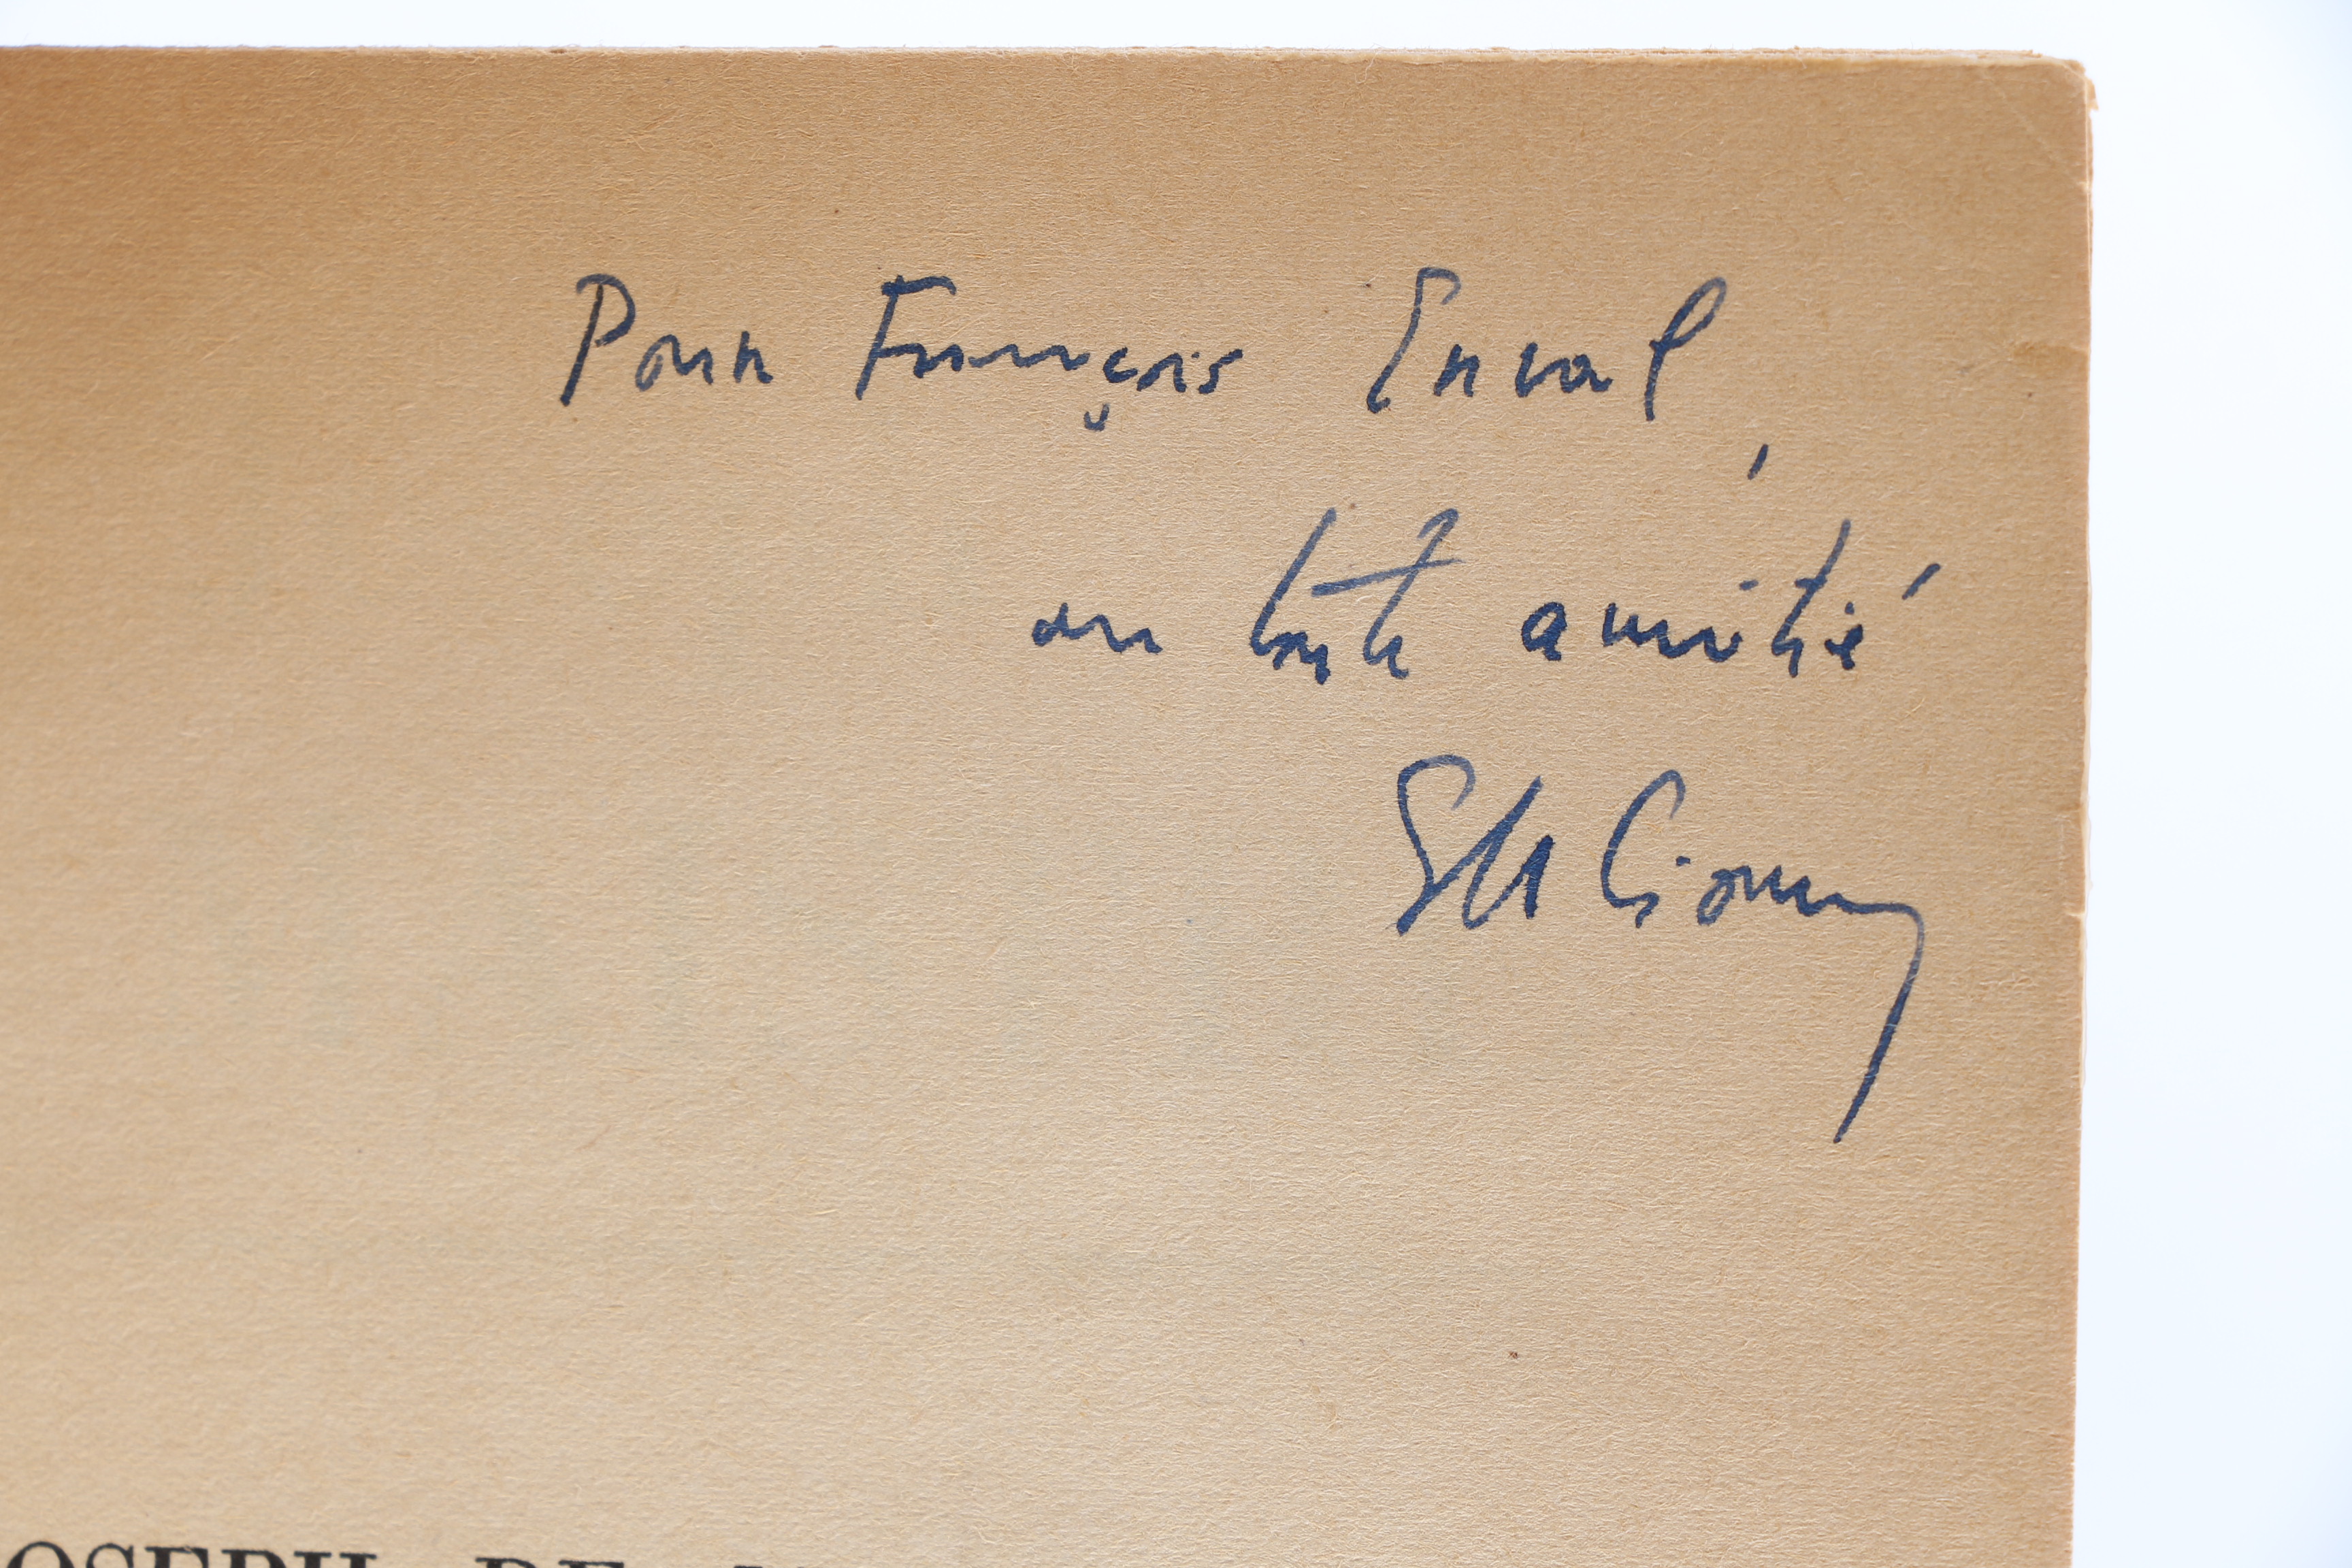 Pour François Erval,
en toute amitié
EM Cioran
OSEPH DE M